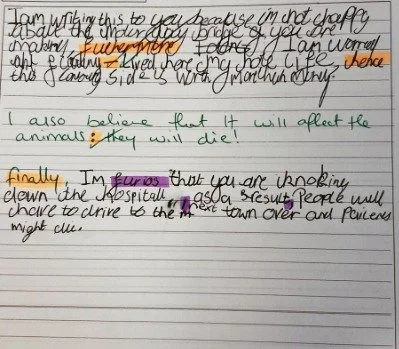 I am writing this to you because im not happy
about the
bridge of you are
making. Furthermore I am worried
lived here my hole life, hence
this side is worth more than money.
I also believe that it will affect the
animals: they will die!
Finally, Im furios that you are knoking
down the Hospitall, as a result, People will
have to drive to the next town over and
might die.